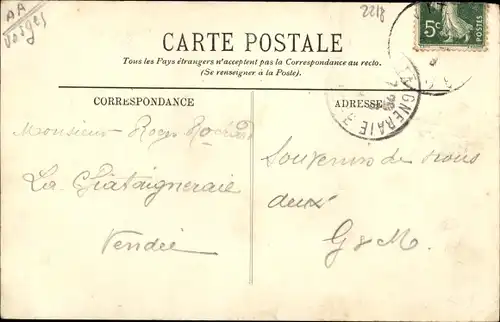 AA
Vosges
2218
5c
CARTE POSTALE
Tous les Pays étrangers n'acceptent pas la Correspondance au recto.
(Se renseigner à la Poste).
CORRESPONDANCE
ADRESSE
AIGNERAIE
Monsieur Roger
La Chataigneraie
Vendée
Souvenirs de nous
deux
G & M.